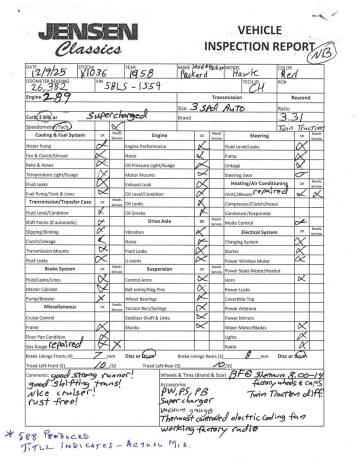 JENSEN
Classics
VEHICLE
INSPECTION REPORT
NB
DATE 12/9/25 STOCK# X1036 YEAR 1958 MAKE Studebaker Packard MODEL Hawk COLOR Red
ODOMETER READING 26,382 VIN 58LS-1559 TECH CH RO#
Engine 289 Transmission Rearend
Size 3 spd Auto Ratio
Carb 2 BRL or Supercharged Brand 3.31
Speedometer/Tach Twin Traction
Cooling & Fuel System OK Needs Service Engine OK Needs Service Steering OK Needs Service
Water Pump Engine Performance Fluid Level/Leaks
Fan & Clutch/Shroud Noise Pump
Belts & Hoses Oil Pressure Light/Guage Linkage
Temperature Light/Guage Motor Mounts Steering Gear
Fluid Leaks Exhaust Leak Heating/Air Conditioning OK Needs Service
Fuel Pump/Tank & Lines Oil Level/Condition HVAC/Blower repaired
Transmission/Transfer Case OK Needs Service Oil Leaks Compressor/Clutch/Hoses
Fluid Level/Condition Oil Smoke Condensor/Evaporator
Shift Points (if automatic) Drive Axle OK Needs Service Mode Control
Slipping/Binding Vibration Electical System OK Needs Service
Clutch/Linkage Noise Charging System
Transmission Mounts Fluid Leaks Starter
Fluid Leaks U-Joints Power Window Motor
Brake System OK Needs Service Suspension OK Needs Service Power Seats Motor/Heated
Fluid/Leaks/Lines Control Arms Horn
Master Cylinder Ball Joints/King Pins Power Locks
Pump/Booster Wheel Bearings Covertible Top
Miscellaneous OK Needs Service Torsion Bars/Springs Power Antenna
Cruise Control Stablizer Shaft & Links Power Mirrors
Frame Shocks Wiper Motor/Blades
Floor Pan Condition Lights
Gas Gauge repaired Radio
Brake Linings Fronts (4) 7 mm Disc or Drum Brake Linings Rears (2) 8 mm Disc or Drum
Tread Left-Front (5) 10 /32 Tread Left-Rear (5) 10 /32 Wheels & Tires (Brand & Size)
Comments: good strong runner!
good shifting trans!
nice cruiser!
rust free!
Accessories
PW, PS, PB
Supercharger
vacuum gauge
Thermostat controlled electric cooling fan
working factory radio
factory wheels & caps
Twin Traction diff.
* 588 PRODUCED
TITLE INDICATES - ACTUAL MI.